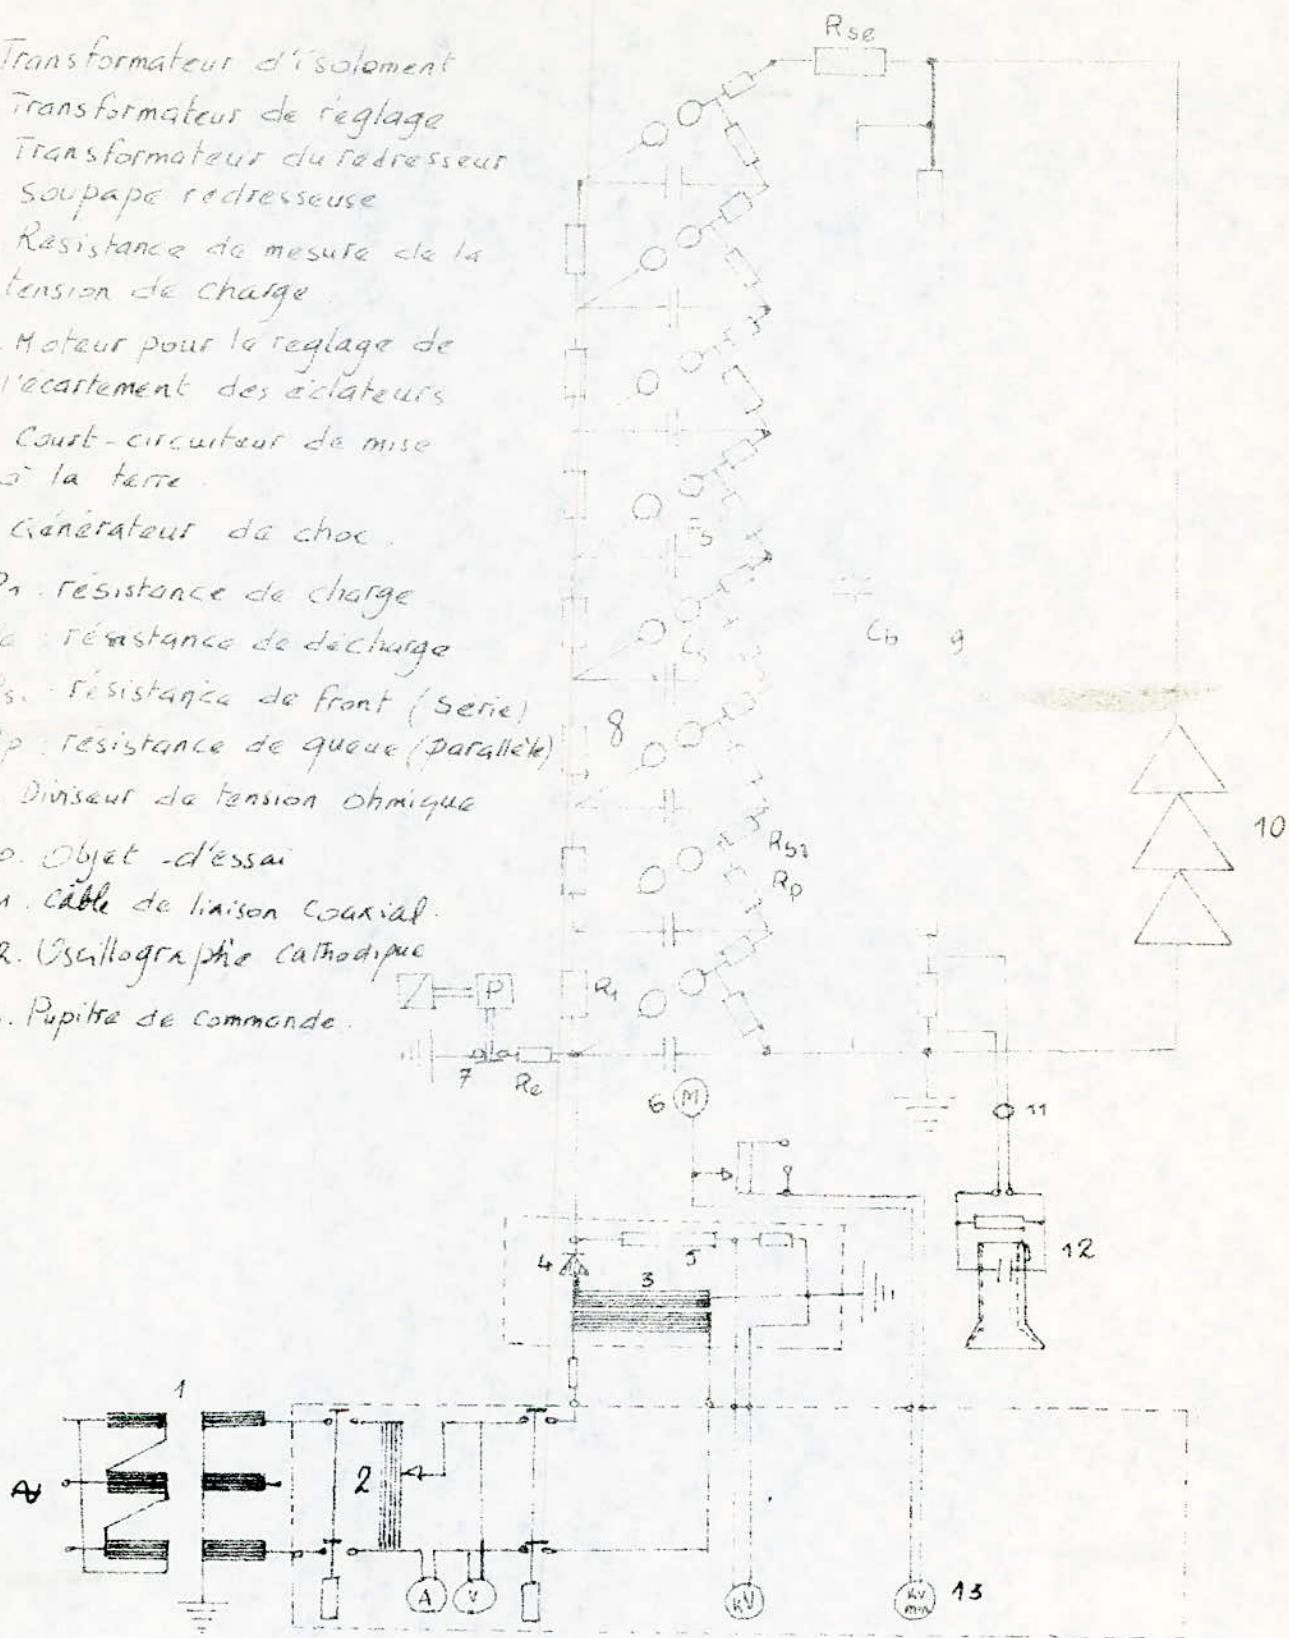 Transformateur d'isolement
Transformateur de réglage
Transformateur du redresseur
Soupape redresseuse
Résistance de mesure de la
tension de charge.
Moteur pour le réglage de
l'écartement des éclateurs
Court-circuiteur de mise
à la terre.
Générateur de choc.
résistance de charge
résistance de décharge
résistance de front (Série)
résistance de queue (Parallèle)
Diviseur de tension ohmique
Objet-d'essai
Câble de liaison coaxial.
Oscillographe cathodique
Pupitre de commande.
Rse
Cb 9
8
10
Rp
P
R1
7 Re
6 M
11
4
5
3
12
1
2
A V kV kV min 13